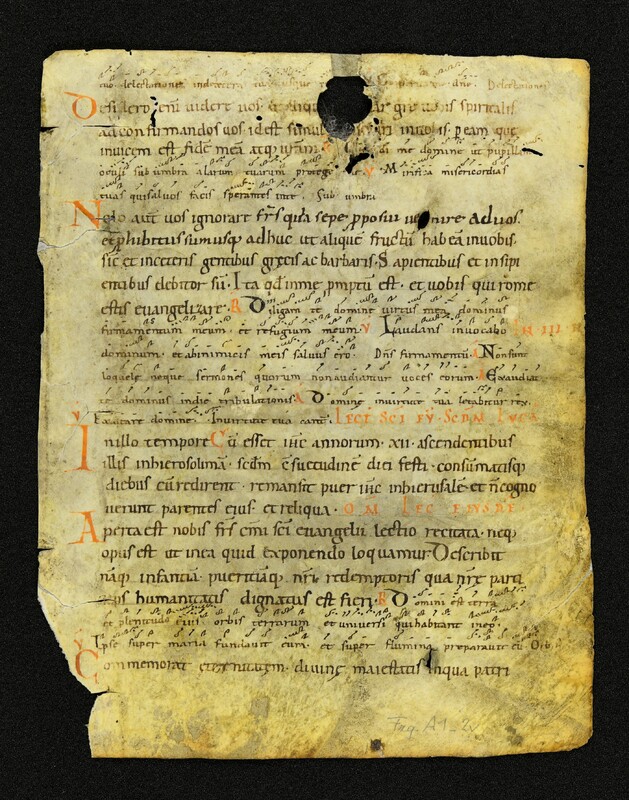 tuo delectationes indextera tua usque Delectationes
Desidero eni uidere uos gre uobis spiritalis
ad confirmandos uos id est simul inuobis. p eam que
inuicem est fide meā atq; urām. me domine ut pupillam
oculi sub umbra alarum tuarum protege V Mirifica misericordias
tuas qui saluos facis sperantes in te. Sub umbra
Nolo aut uos ignorare frs quia sepe pposui uenire ad uos.
et phibitus sum usq; adhuc ut aliquē fructū habeā inuobis.
sic et inceteris gentibus grecis ac barbaris. Sapientibus et insipi
entibus debitor sū. Ita qd inme pmptū est. et uobis qui rome
estis euangelizare. R Diligam te domine uirtus mea dominus
firmamentum meum. et refugium meum. V Laudans inuocabo IN III N
dominum. et abinimicis meis saluus ero. Dns firmamentū. A Non sunt
loquele neque sermones quorum non audiantur uoces eorum. A Exaudiat
te dominus indie tribulationis. A Domine inuirtute tua letabitur rex.
V Exaltare domine. Inuirtute tua cant. LECT SCI EV SCDM LVCA
In illo tempore Cū esset ihc annorum. xii. ascendentibus
illis inhierosolimā. scdm csuetudinē diei festi. consūmatisq;
diebus cū redirent. remansit puer ihc inhierusalē. et n cogno
uerunt parentes eius. et reliqua. OM LEC EIVSDE
Aperta est nobis frs cmi sci euangelii lectio recitata. neq;
opus est ut inea quid exponendo loquamur Describit
naq; infantiā. pueritiāq; nri redemptoris qua nrē parti
ceps humanitatis dignatus est fieri. R Domini est terra
et plenitudo eius. orbis terrarum et uniuersi qui habitant ineo.
V Ipse super maria fundauit eum. et super flumina preparauit eū Orb
Commemorat diuine maiestatis inqua patri
Frag. A 1 - 2v